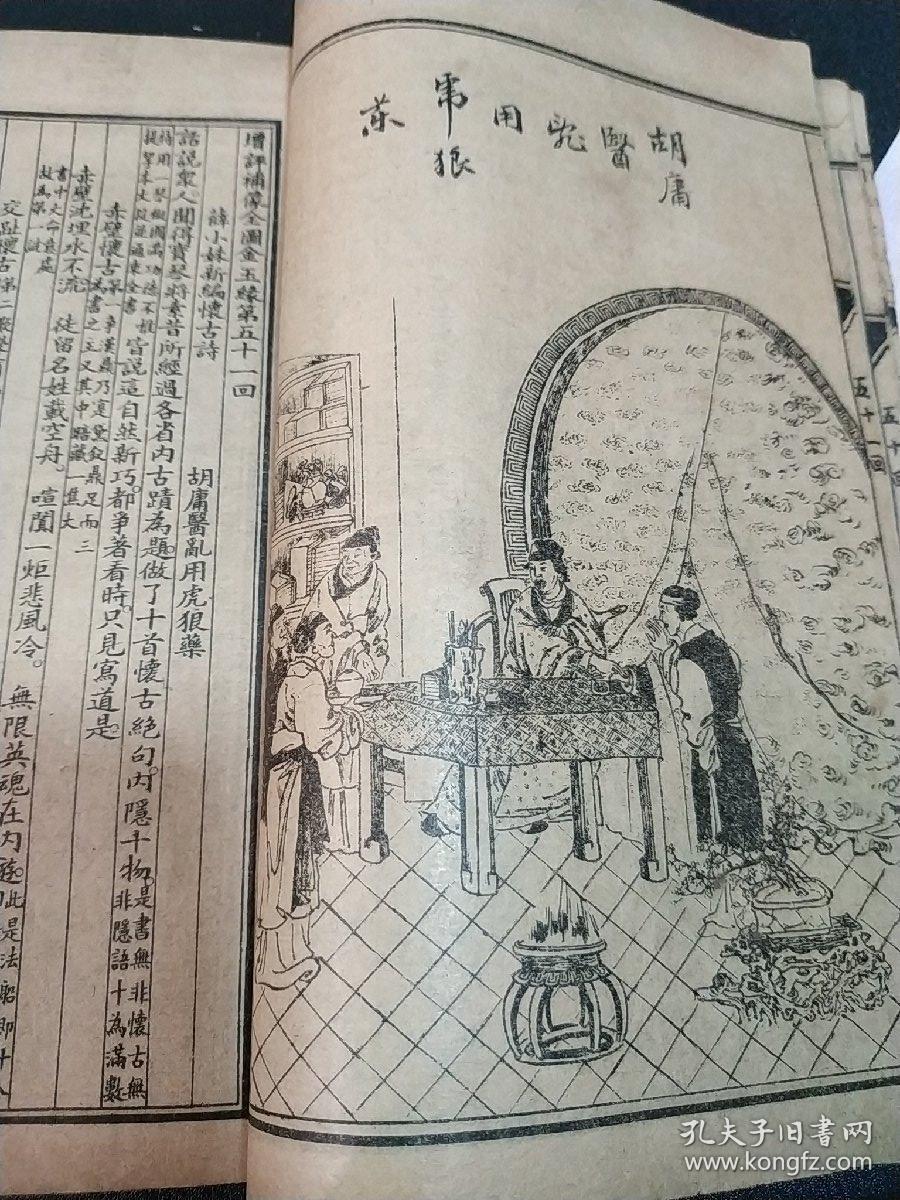 胡庸醫亂用虎狼藥
增評補像全圖金玉緣第五十一回
薛小妹新編懷古詩 胡庸醫亂用虎狼藥
話說衆人聞得寶琴將素昔所經過各省內古蹟為題做了十首懷古絕句內隱十物是書無非懷古無非隱語十為滿數
皆說這自然新巧都爭著看時只見寫道是
赤壁懷古第一
赤壁沈埋水不流 徒留名姓載空舟 喧闐一炬悲風冷 無限英魂在內遊此是法船即十八
交趾懷古第二
五十一回
五十回
孔夫子旧书网
www.kongfz.com